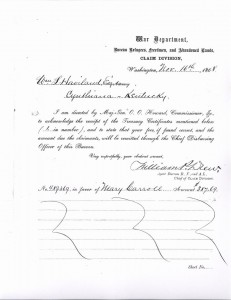 War Department,
Bureau Refugees, Freedmen, and Abandoned Lands,
CLAIM DIVISION,
Washington, Nov. 16th, 186
Haviland
Cynthiana - Kentucky.
I am directed by Maj. Gen'l O. O. Howard, Commissioner, &c.,
to acknowledge the receipt of the Treasury Certificates mentioned below
( in number), and to state that your fee, if found correct, and the
amount due the claimants, will be remitted through the Chief Disbursing
Officer of this Bureau.
Very respectfully, your obedient servant,
William P. Drew
Chief of Claim Division.
No. in favor of Mary Carroll Amount $ 257.69